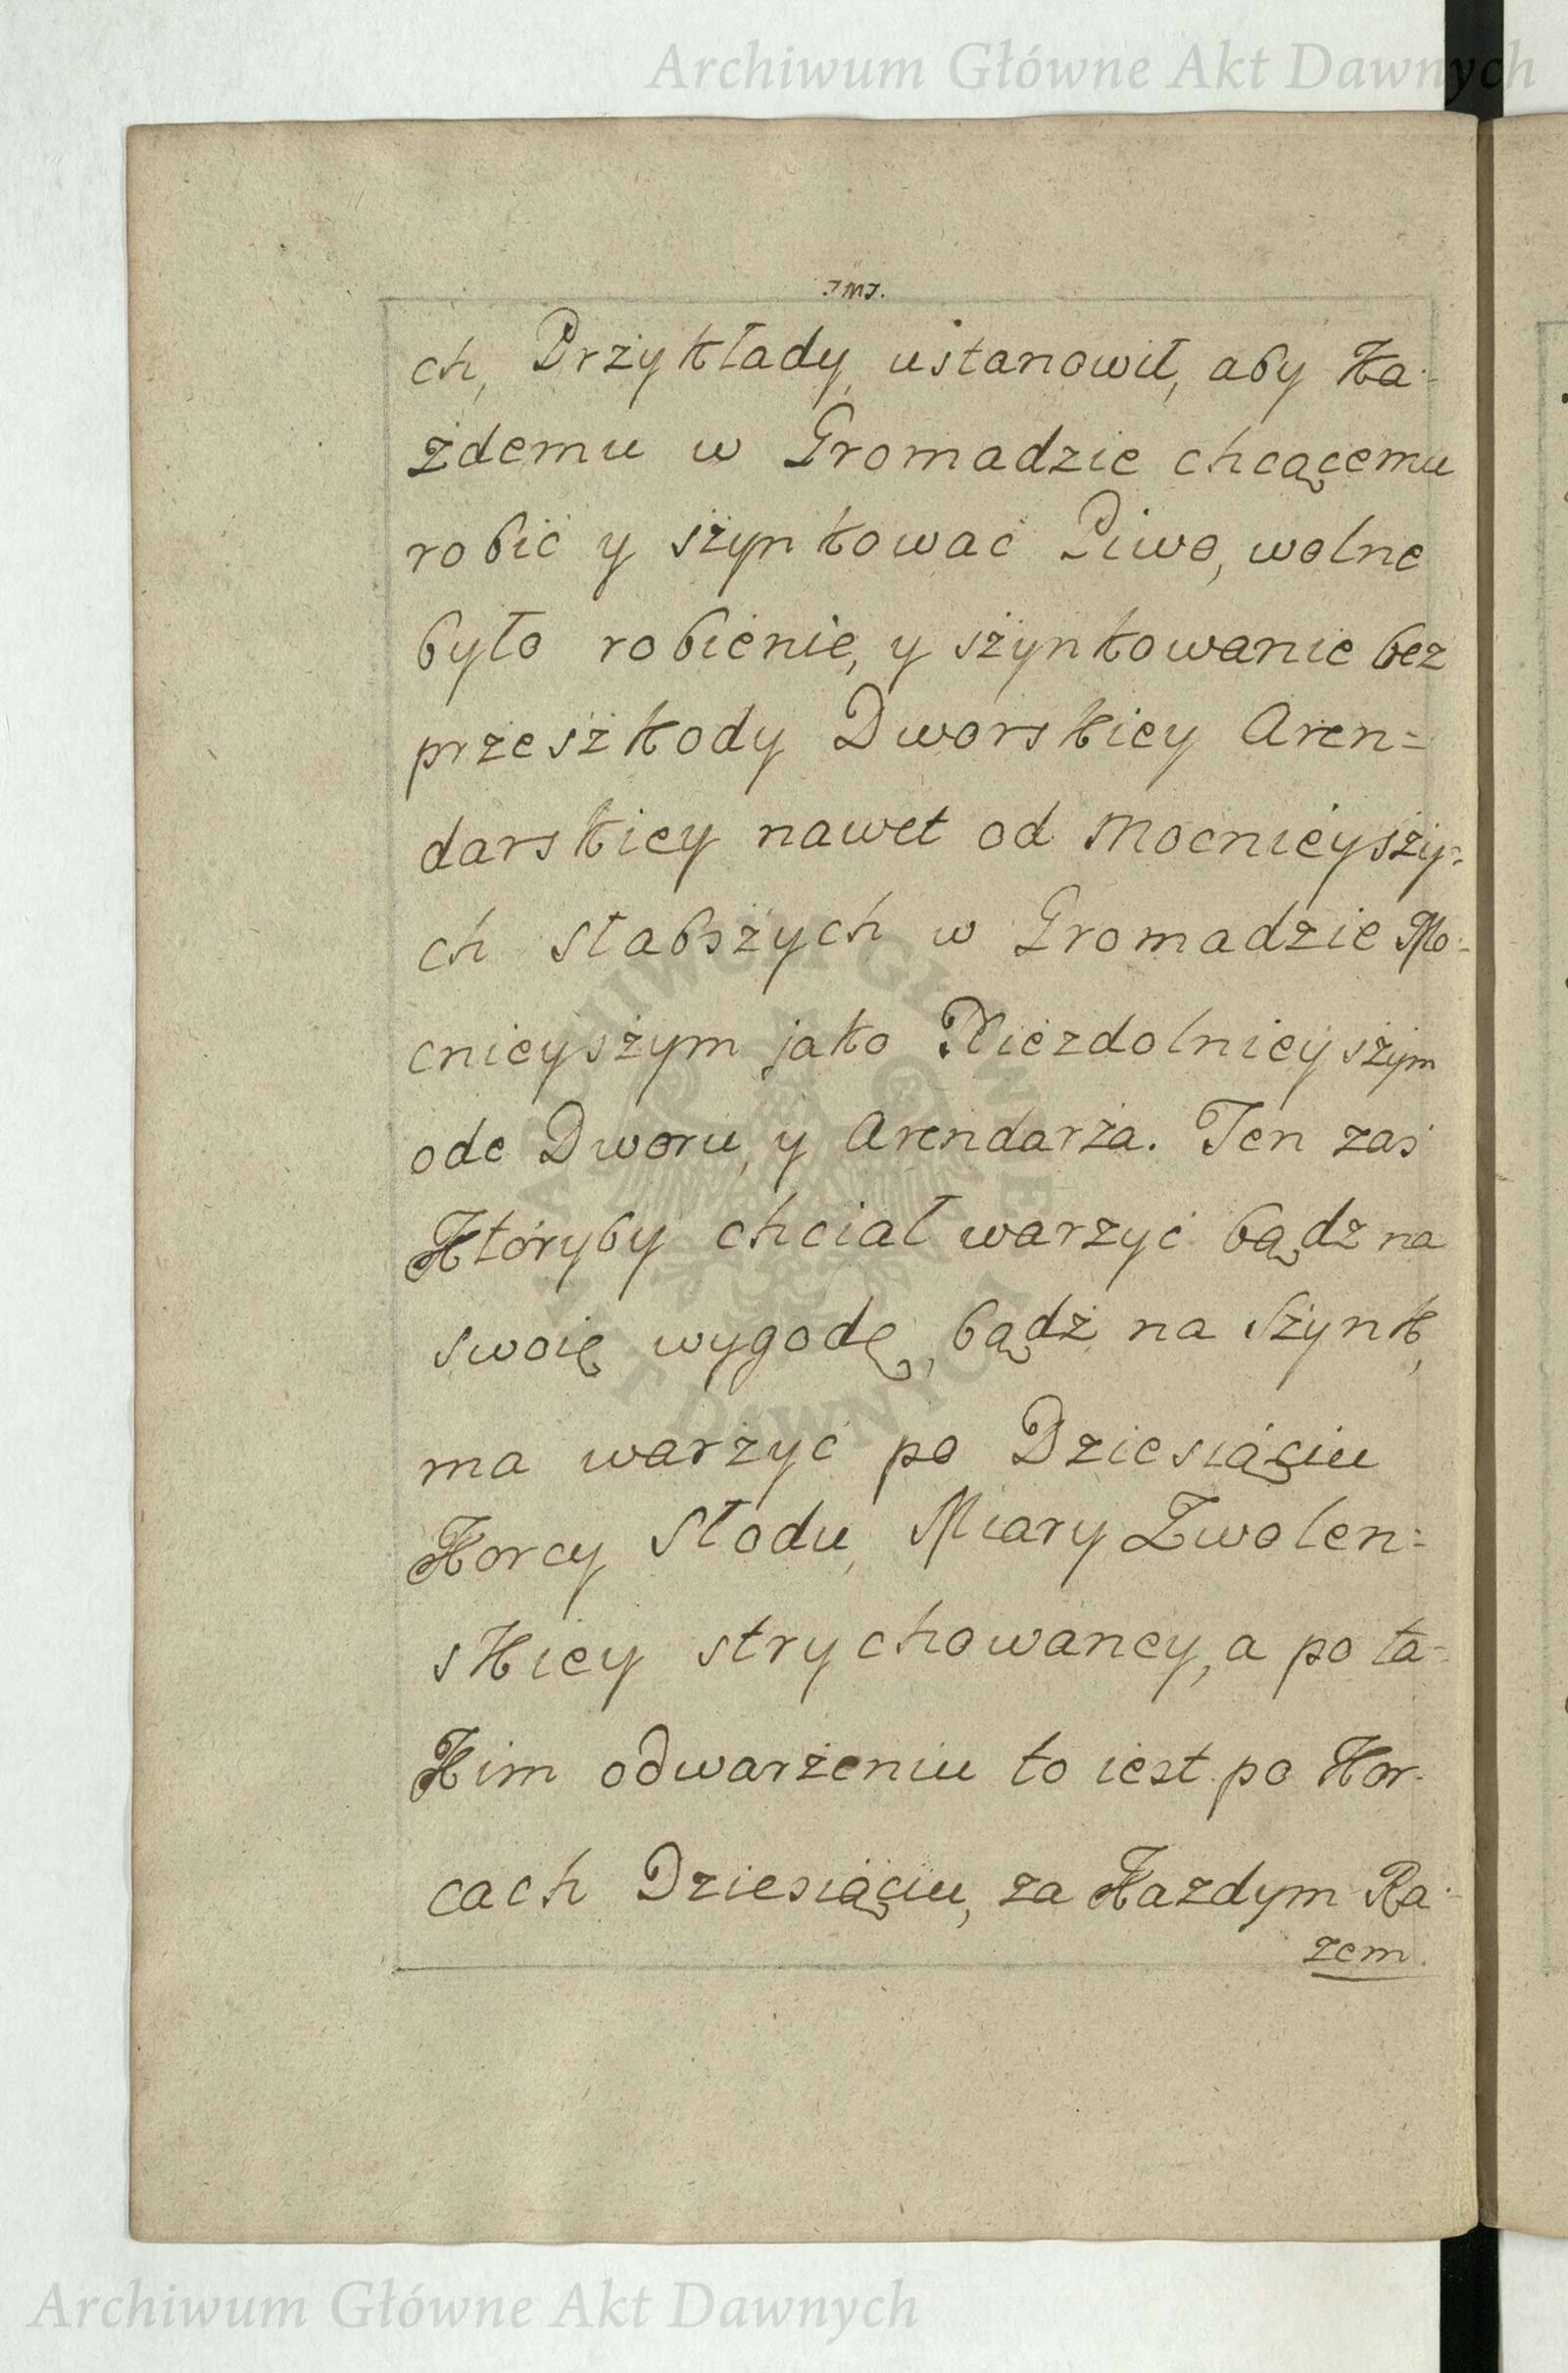 Archiwum Główne Akt Dawnych
J.M.J.
ch, Przykłady, ustanowił, aby Ka-
żdemu w Gromadzie chcącemu
robić y szynkować Piwo, wolne
było robienie, y szynkowanie bez
przeszkody Dworskiey Aren=
darskiey nawet od Mocnieyszy=
ch słabszych w Gromadzie Mo-
cnieyszym jako Niezdolnieyszym
ode Dworu, y Arendarza. Ten zaś
Któryby chciał warzyć bądz na
swoię wygodę, bądź na Szynk,
ma warzyć po Dziesiąciu
Korcy Słodu, Miary Zwolen=
skiey strychowaney, a po ta-
Kim odwarzeniu to iest po Kor-
cach Dziesiąciu, za Kazdym Ra-
zem.
ARCHIWUM GŁÓWNE AKT DAWNYCH
Archiwum Główne Akt Dawnych